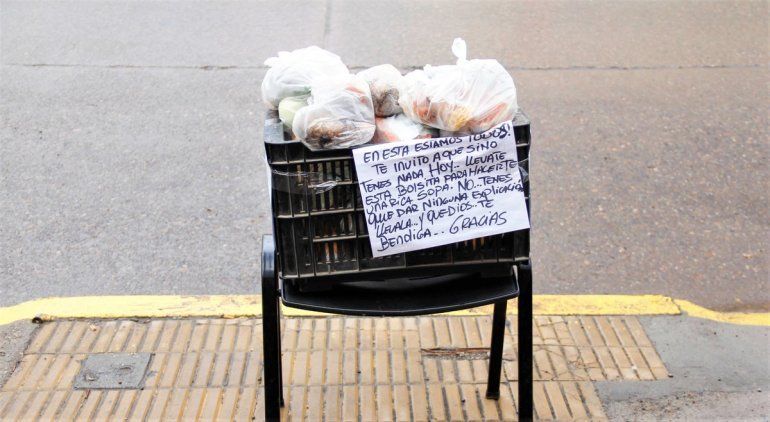 EN ESTA ESTAMOS TODOS!
TE INVITO A QUE SINO
TENES NADA HOY.. LLEVATE
ESTA BOLSITA PARA HACERTE
UNA RICA SOPA. NO.. TENES
QUE DAR NINGUNA EXPLICACION
LLEVALA.. Y QUE DIOS.. TE
BENDIGA.. GRACIAS